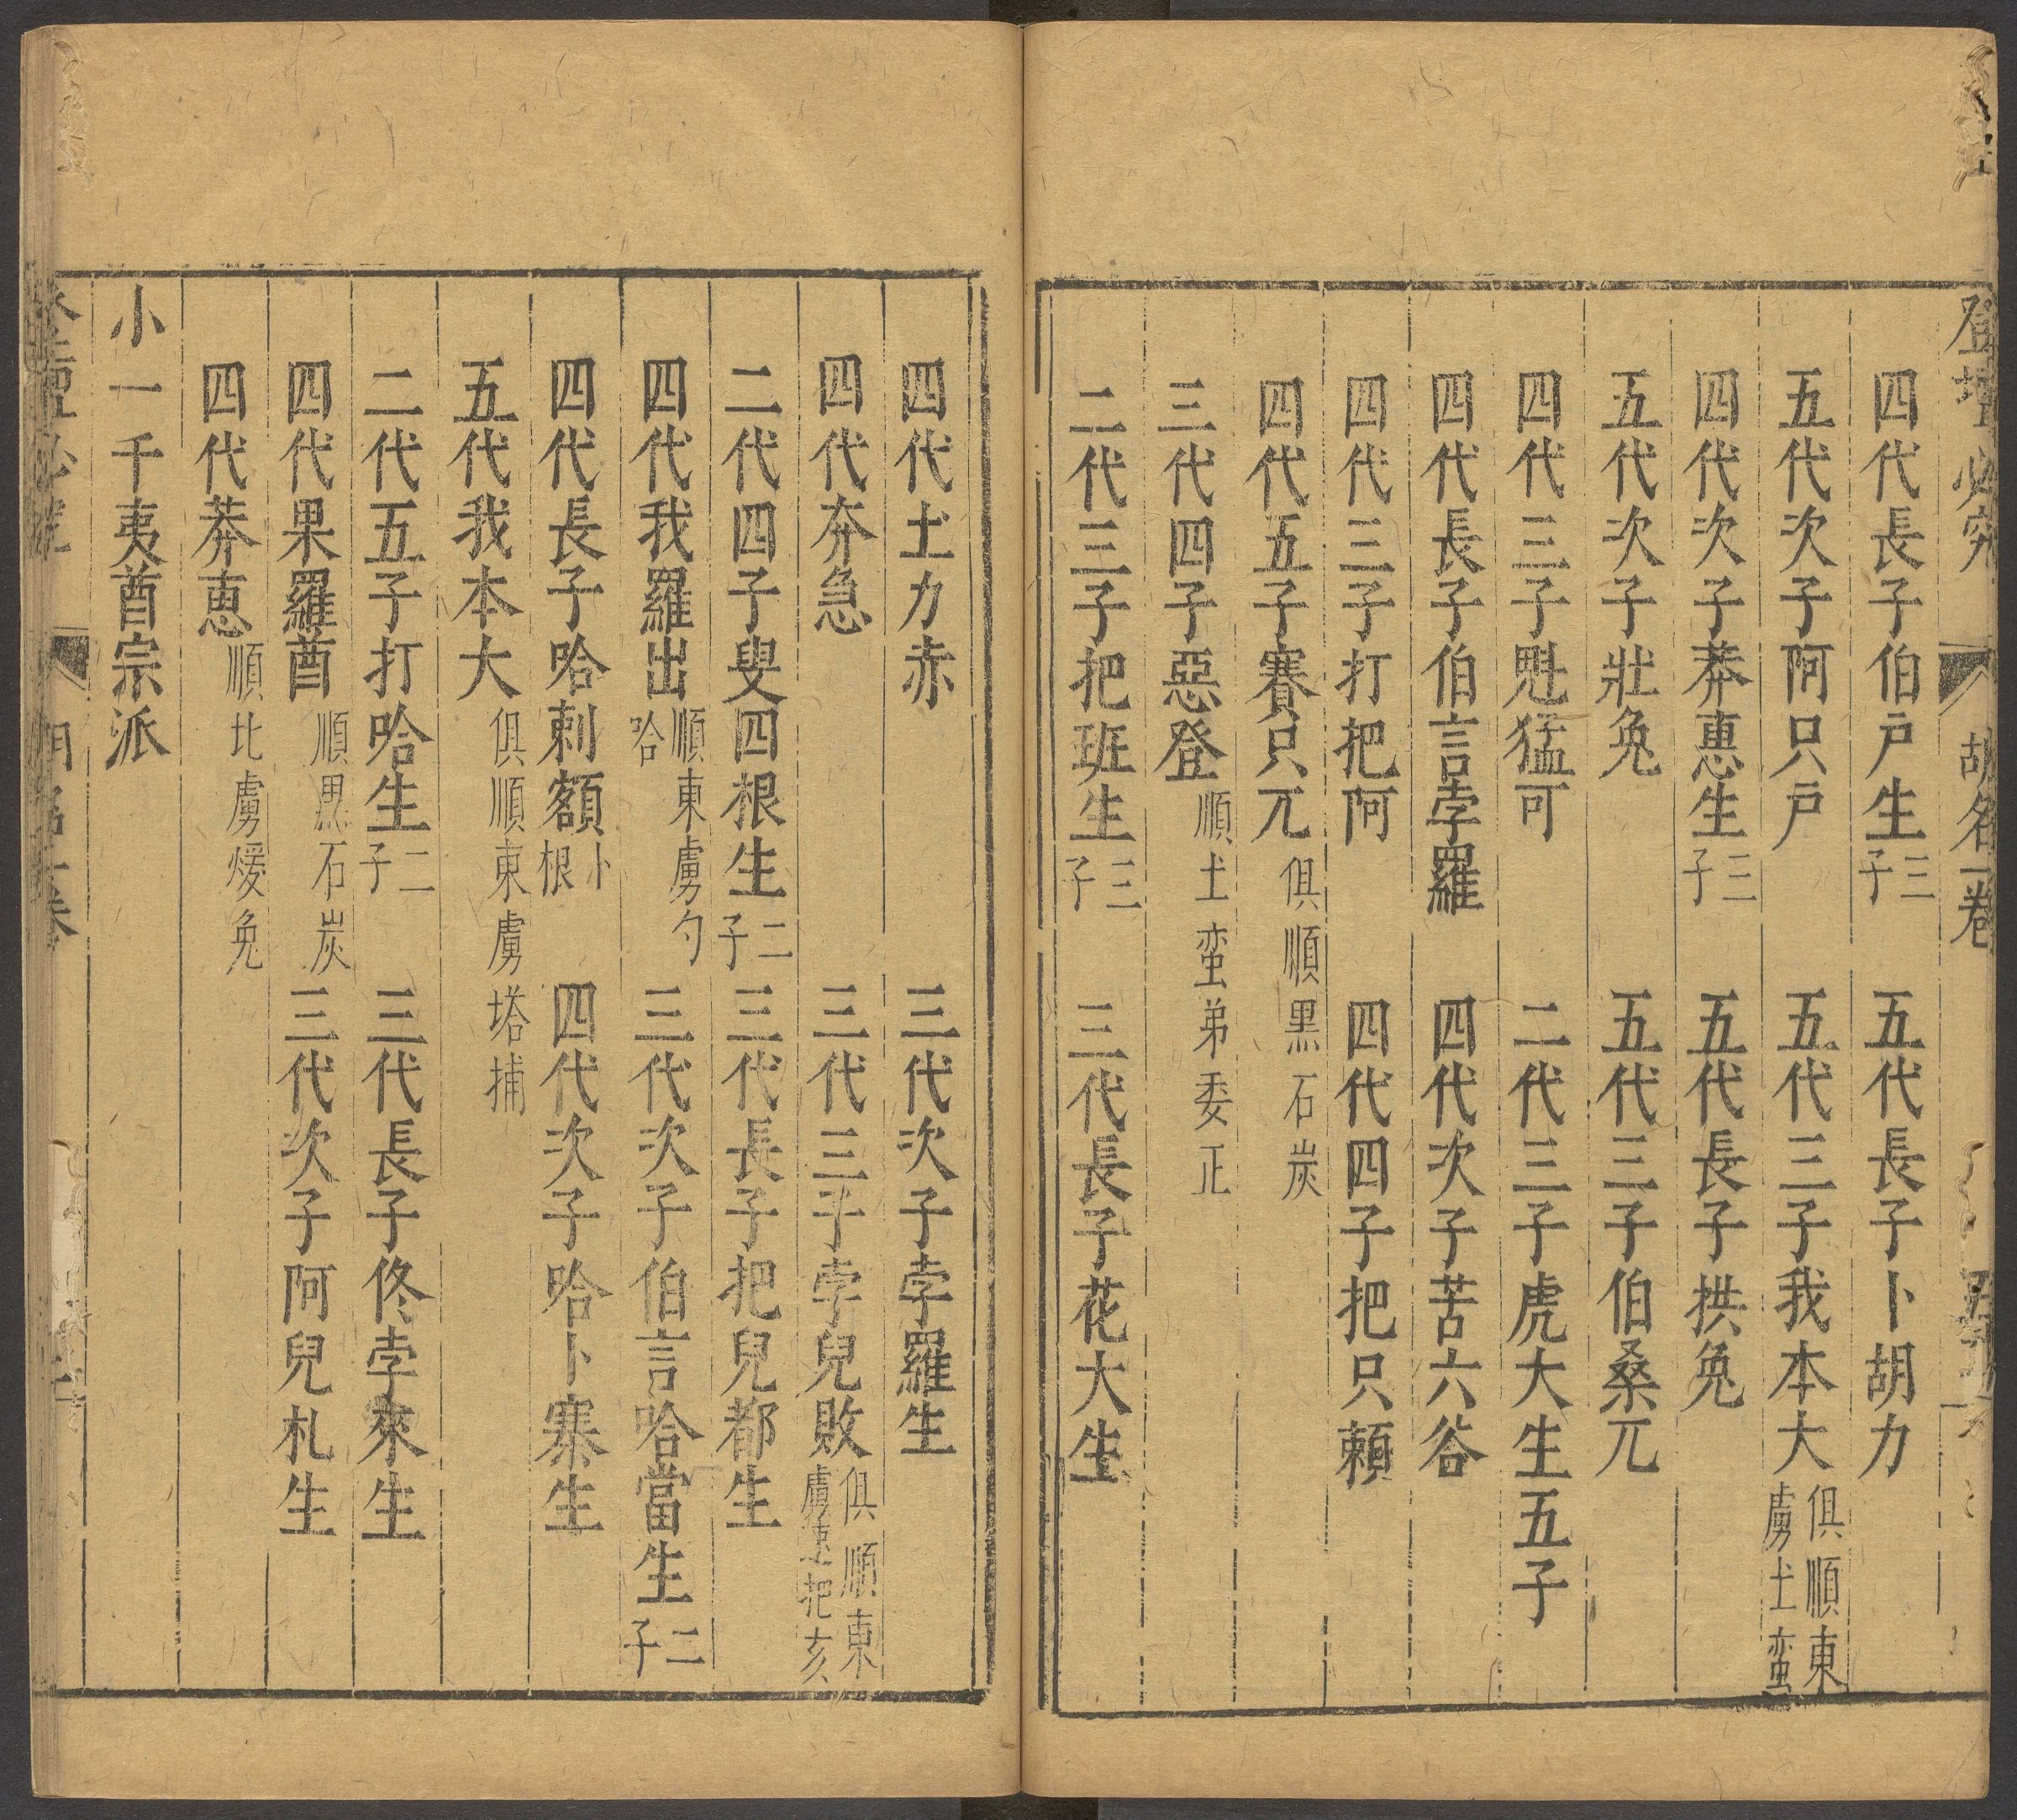 登壇必究 胡名一卷
四代長子伯戶生三子 五代長子卜胡力
五代次子阿只戶 五代三子我本大俱順東虜土蛮
四代次子莽惠生三子 五代長子拱兔
五代次子壯兔 五代三子伯桑兀
四代三子魁猛可 二代三子虎大生五子
四代長子伯言孛羅 四代次子苦六谷
四代三子打把阿 四代四子把只賴
四代五子賽只兀俱順黑石炭
三代四子惡登順土蛮弟委正
二代三子把班生三子 三代長子花大生
四代土力赤 三代次子孛羅生
四代夯急 三代三子孛兒敗俱順東虜速把亥
二代四子叟四根生二子 三代長子把兒都生
四代我羅出順東虜勺哈 三代次子伯言哈當生二子
四代長子哈剌額卜根 四代次子哈卜寨生
五代我本大俱順東虜塔捕
二代五子打哈生二子 三代長子佟孛來生
四代果羅酋順黑石炭 三代次子阿兒札生
四代莽惠順北虜煖兔
小一千夷酋宗派